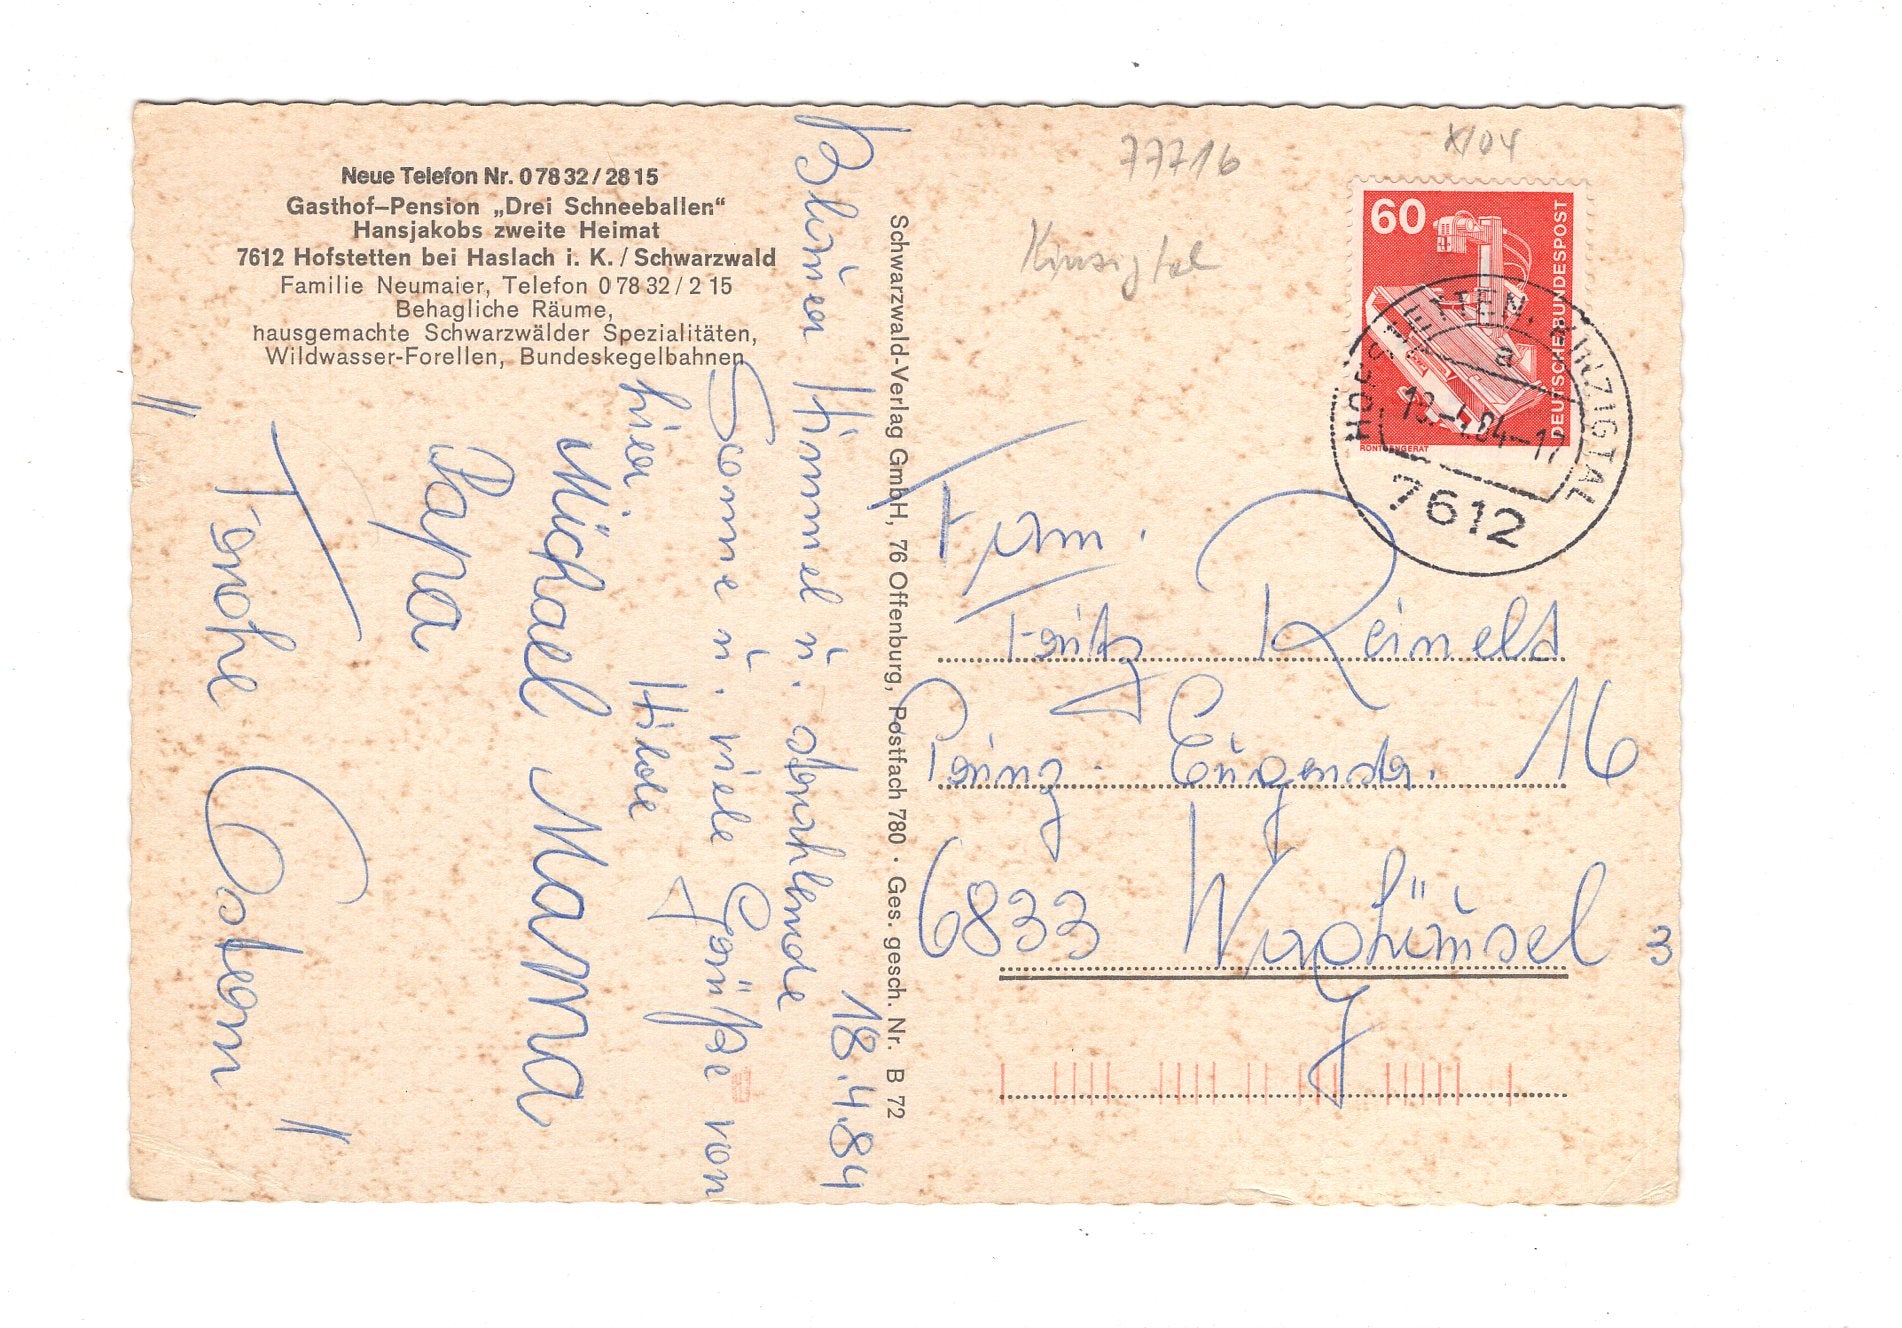 Neue Telefon Nr. 07832/2815
Gasthof–Pension „Drei Schneeballen“
Hansjakobs zweite Heimat
7612 Hofstetten bei Haslach i. K. / Schwarzwald
Familie Neumaier, Telefon 07832/215
Behagliche Räume,
hausgemachte Schwarzwälder Spezialitäten,
Wildwasser-Forellen, Bundeskegelbahnen
18.4.84
Blauer Himmel u. strahlende
Sonne u. viele Grüße von
hier Hilde
Michael Mama
Papa
Frohe Ostern
Schwarzwald-Verlag GmbH, 76 Offenburg, Postfach 780 · Ges. gesch. Nr. B 72
77716
X/04
Kinzigtal
60
DEUTSCHE BUNDESPOST
RÖNTGENGERÄT
HOFSTETTEN, KINZIGTAL
a
-4.84-17
7612
Fam.
Fritz Reinelt
Prinz-Eugenstr. 16
6833 Waghäusel 3